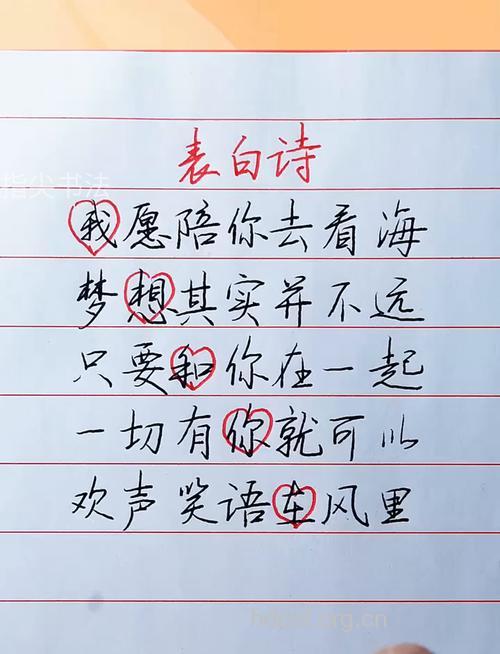 表白诗
指尖书法
我愿陪你去看海
梦想其实并不远
只要和你在一起
一切有你就可以
欢声笑语在风里